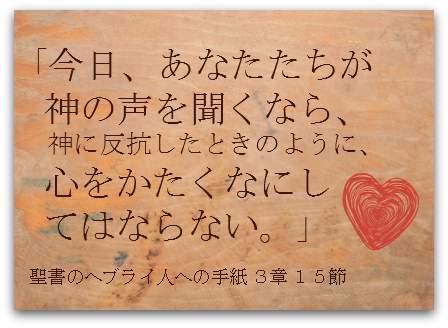 「今日、あなたたちが
神の声を聞くなら、
神に反抗したときのように、
心をかたくなにし
てはならない。」
聖書のヘブライ人への手紙 ３章 １５節